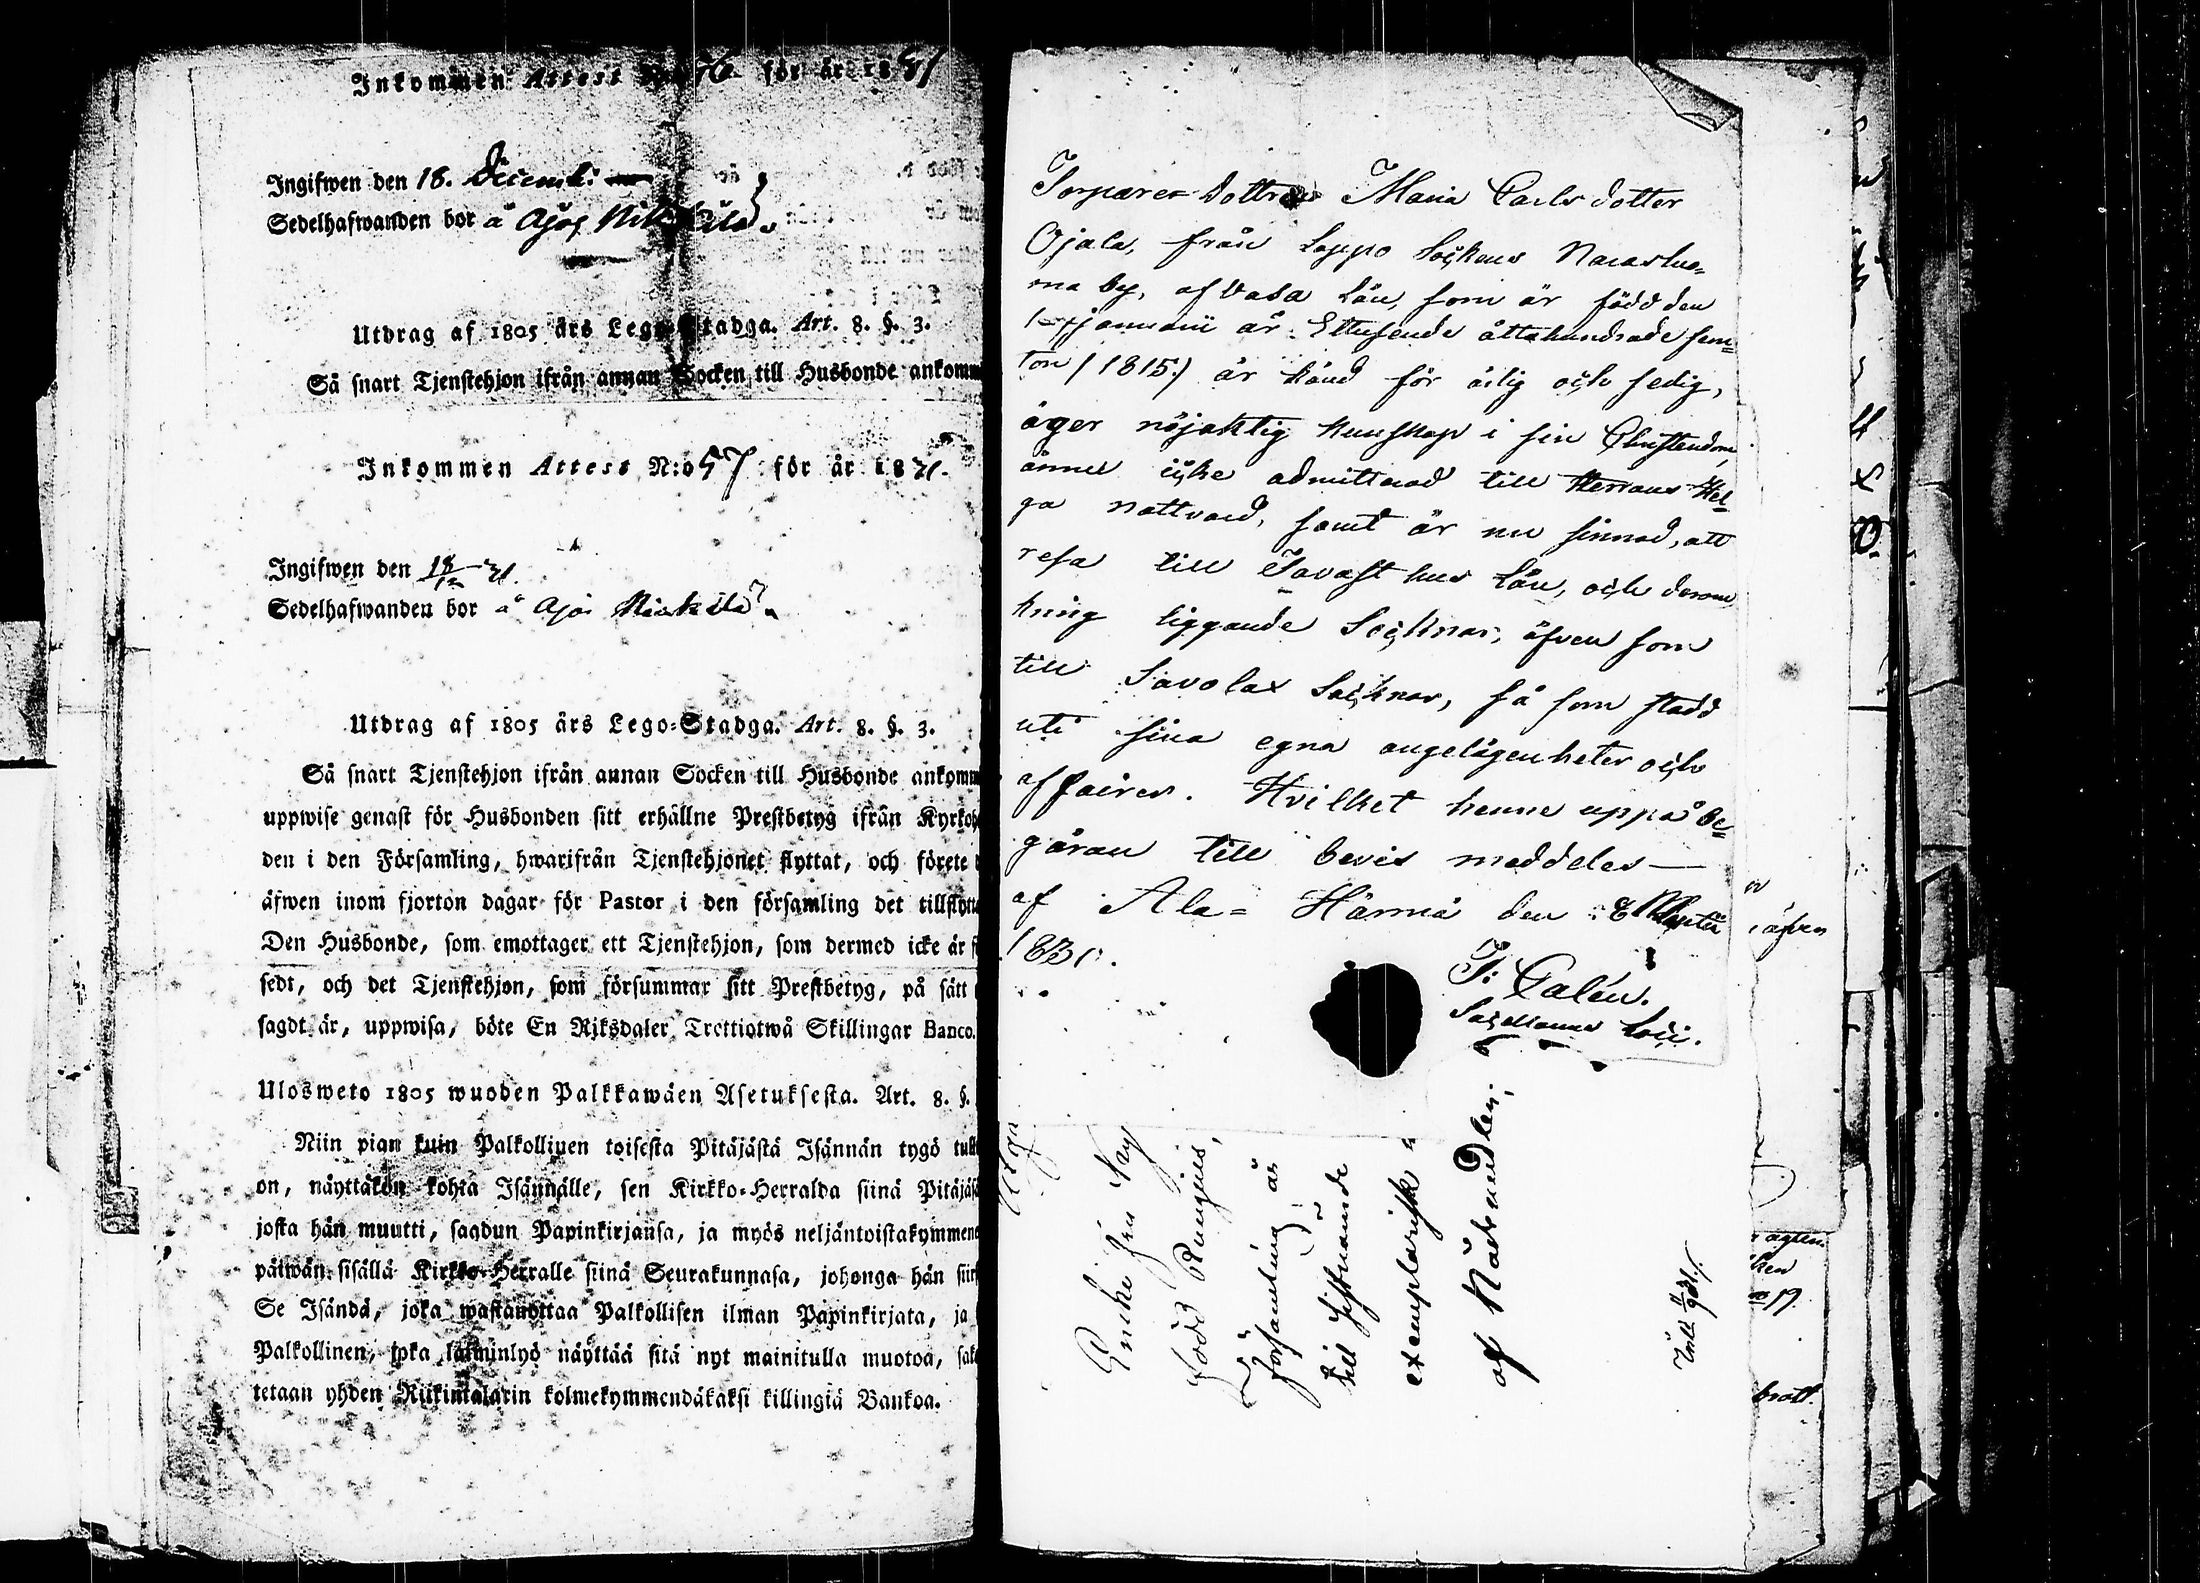 Inkommen Attest N:o 56 för år 1831
Ingifwen den 18. Decemb:
Sedelhafwanden bor å Ajos
Utdrag af 1805 års Lego-Stadga. Art. 8. §. 3.
Så snart Tjenstehjon ifrån annan Socken till Husbonde ankomm
Inkommen Attest N:o 57 för år 1831.
Ingifwen den 18/12 31.
Sedelhafwanden bor å Ajos
Utdrag af 1805 års Lego-Stadga. Art. 8. §. 3.
Så snart Tjenstehjon ifrån annan Socken till Husbonde ankomm
uppwise genast för Husbonden sitt erhållne Prestbetyg ifrån Kyrkoh
den i den Församling, hwarifrån Tjenstehjonet flyttat, och förete
äfwen inom fjorton dagar för Pastor i den församling det tillflytt
Den Husbonde, som emottager ett Tjenstehjon, som dermed icke är f
sedt, och det Tjenstehjon, som försummar sitt Prestbetyg, på sätt
sagdt är, uppwisa, böte En Riksdaler Trettiotwå Skillingar Banco.
Ulosweto 1805 wuoden Palkkawäen Asetuksesta. Art. 8. §.
Niin pian kuin Palkollinen toisesta Pitäjästä Isännän tygö tull
on, näyttäkön kohta Isännälle, sen Kirkko-Herralda siinä Pitäjäs
josta hän muutti, saadun Papinkirjansa, ja myös neljäntoistakymmene
päiwän sisällä Kirkko-Herralle siinä Seurakunnasa, johonga hän siir
Se Isändä, joka wastanottaa Palkollisen ilman Papinkirjata, ja
Palkollinen, joka laiminlyö näyttää sitä nyt mainitulla muotoa, sak
tetaan yhden Riikintalarin kolmekymmendäkaksi killingiä Bankoa.
Torpare Dottren Maria Carlsdotter
Ojala, från Lappo Sockens Narasluo=
ma by, af Vasa Län, som är född den
januarii år Ettusende åttahundrade fem=
ton (1815.) är känd för ärlig och sedig,
äger nöjaktig kunskap i sin Christendom,
ännu icke admitterad till Herrans Hel=
ga nattvard, samt är nu sinnad, att
resa till Tavasthus Län, och derom
kring liggande Socknar, äfven som
till Savolax Socknar, så som stadd
uti sina egna angelägenheter och
affairer. Hvilket henne uppå be=
gäran till bevis meddeles
af Ala-Härmä den
1831.
J: Calén.
Sacellanus Loci.
Enkefru
född Rungius,
församling är
till sistnämnde
exemplarisk
af Nådmedlen;
äfven